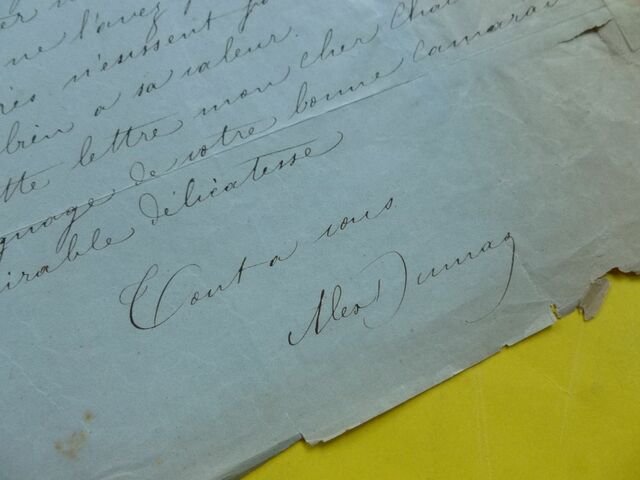 ne l'avez
n'eussent
bien a sa valeur.
lettre mon cher
gnage de votre bonne camarad
irable délicatesse
Tout a vous
Alex Dumas